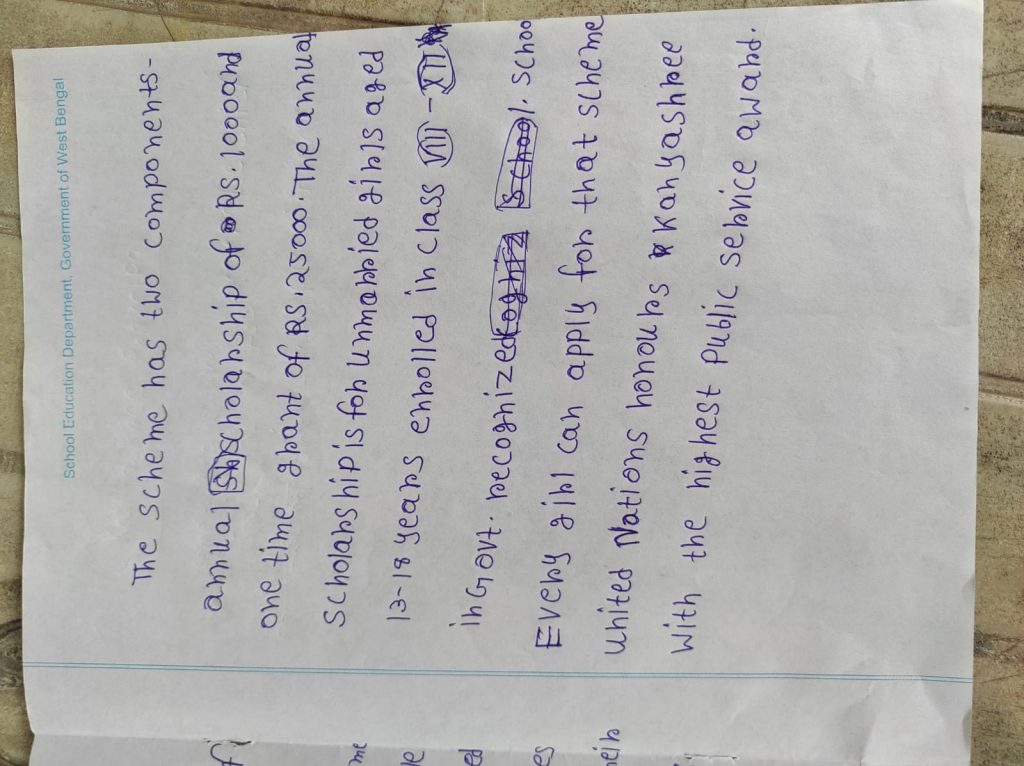 School Education Department, Government of West Bengal
The scheme has two components-
annual scholarship of RS.1000 and
one time grant of RS.25000. The annual
scholarship is for unmarried girls aged
13-18 years enrolled in class VIII - XII
in Govt. recognized school.
Every girl can apply for that scheme
United Nations honours Kanyashree
With the highest public service award.
me
ed
es
heir